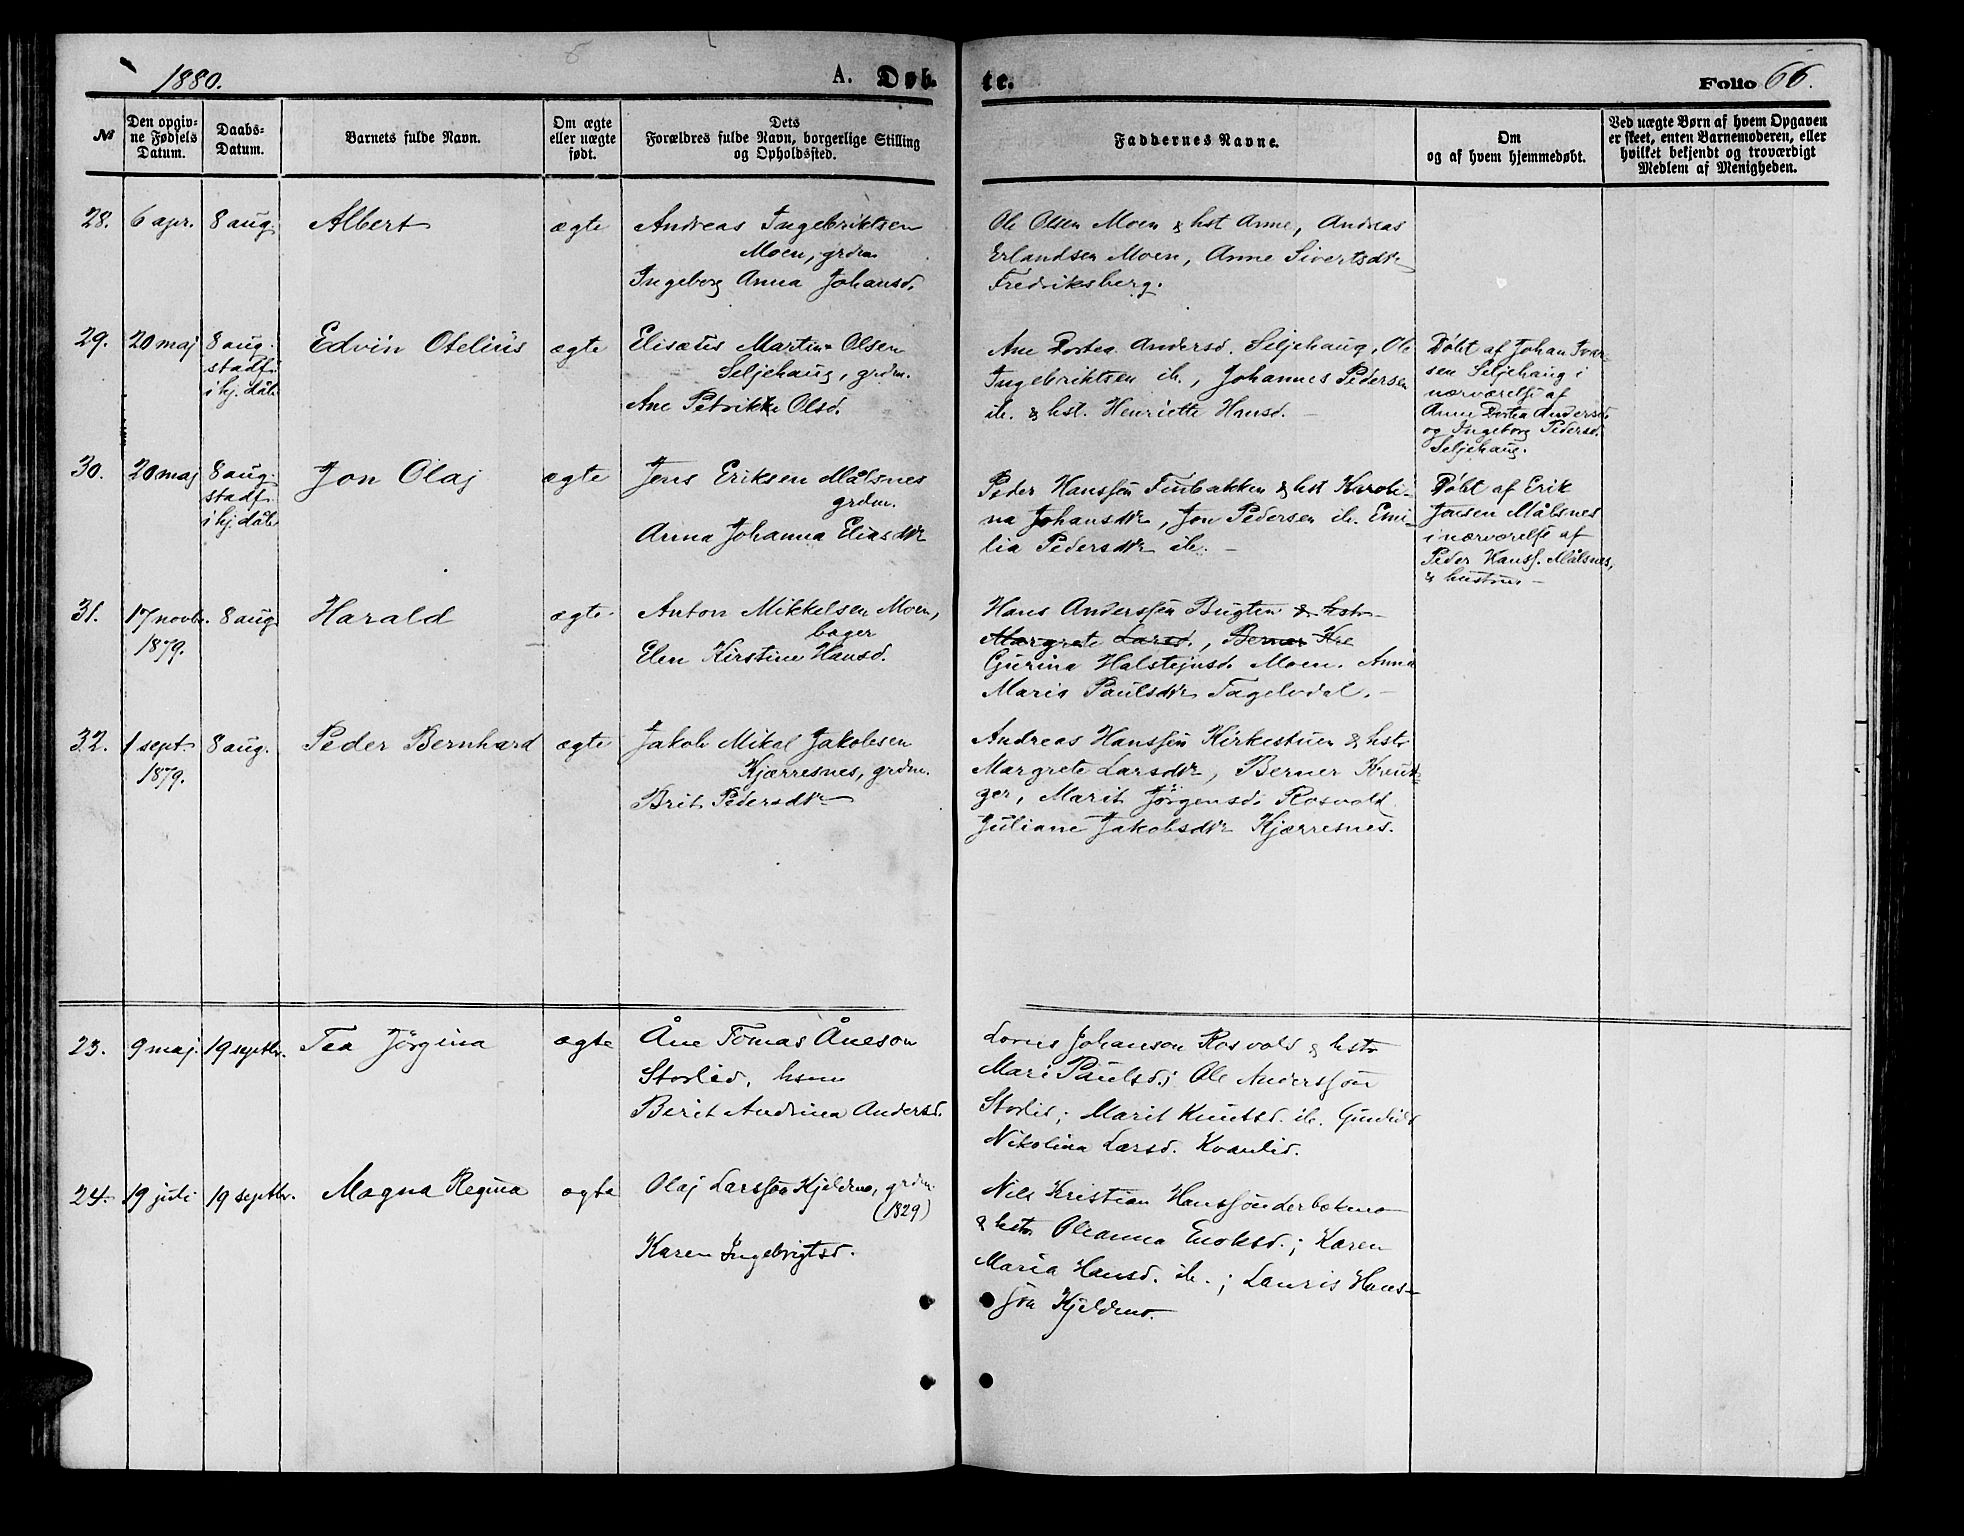 1880.
A. Døb-
te.
Folio 66.
№
Den opgiv-
ne Fødsels
Datum.
Daabs-
Datum.
Barnets fulde Navn.
Om ægte
eller uægte
født.
Dets
Forældres fulde Navn, borgerlige Stilling
og Opholdssted.
Faddernes Navne.
Om
og af hvem hjemmedøbt.
Ved uægte Børn af hvem Opgaven
er skeet, enten Barnemoderen, eller
hvilket bekjendt og troværdigt
Medlem af Menigheden.
28.
6 apr.
8 aug.
Albert
ægte
Andreas Ingebriktsen
Moen, grdm.
Ingeborg Anna Johansd.
Ole Olsen Moen & hst Anne, Andreas
Erlandsen Moen, Anne Sivertsdtr
Fredriksberg.
29.
20 maj
8 aug.
stadf.
i hj. dåb
Edvin Otelius
ægte
Elisæus Martin Olsen
Seljehaug, grdm.
Ane Petrikke Olsd.
Ane Dortea Andersd. Seljehaug, Ole
Ingebriktsen ib., Johannes Pedersen
ib. & hst. Henriette Hansd. –
Døbt af Johan Ivar-
sen Seljehaug i
nærværelse af
Anne Dortea Andersd.
og Ingeborg Pedersd.
Seljehaug.
30.
20 maj
8 aug.
stadf.
i hj. dåb
Jon Olaj
ægte
Jens Eriksen Målsnes
grdm.
Anna Johanna Eliasdtr
Peder Hanssen Finbakken & hst Karoli-
na Johansdtr, Jon Pedersen ib. Emi-
lia Pedersdtr ib. –
Døbt af Erik
Jensen Målsnes
i nærværelse af
Peder Hanss. Målsnes,
& hustru –
31.
17 novbr.
1879.
8 aug
Harald
ægte
Anton Mikkelsen Moen,
bager
Elen Kirstine Hansd.
Hans Anderssen Bugten & hst
Margrete Larsd., Berner Kre
Gjurina Halstejnsd. Moen. Anna
Maria Paulsdtr Fagelvdal. –
32.
1 sept.
1879.
8 aug.
Peder Bernhard
ægte
Jakob Mikal Jakobsen
Kjærresnes, grdm.
Brit Pedersdtr
Andreas Hanssen Kirkestuen & hstr
Margrete Larsdtr, Berner Kreut-
zer, Marit Jörgensd. Rosvold
Juliane Jakobsdtr Kjærresnes.
23.
9 maj.
19 septbr.
Tea Jörgina
ægte
Åne Tomas Åneson
Storlid, hsm
Berit Andrina Andersd.
Johanson Rosvold & hstr
Mari Paulsd.; Ole Anderssön
Storlid; Marit Knutsd. ib. Gunhild
Nikolina Larsd. Kvanlid.
24.
19 juli
19 septbr.
Magna Regina
ægte
Olaj Larssön Kjeldmo, grdm.
(1829)
Karen Ingebrigtsd.
Nils Kristian Hanssön
& hstr Oleanna Enoksd.; Karen
Maria Hansd. ib.; Lauris Hans-
sön Kjeldmo.